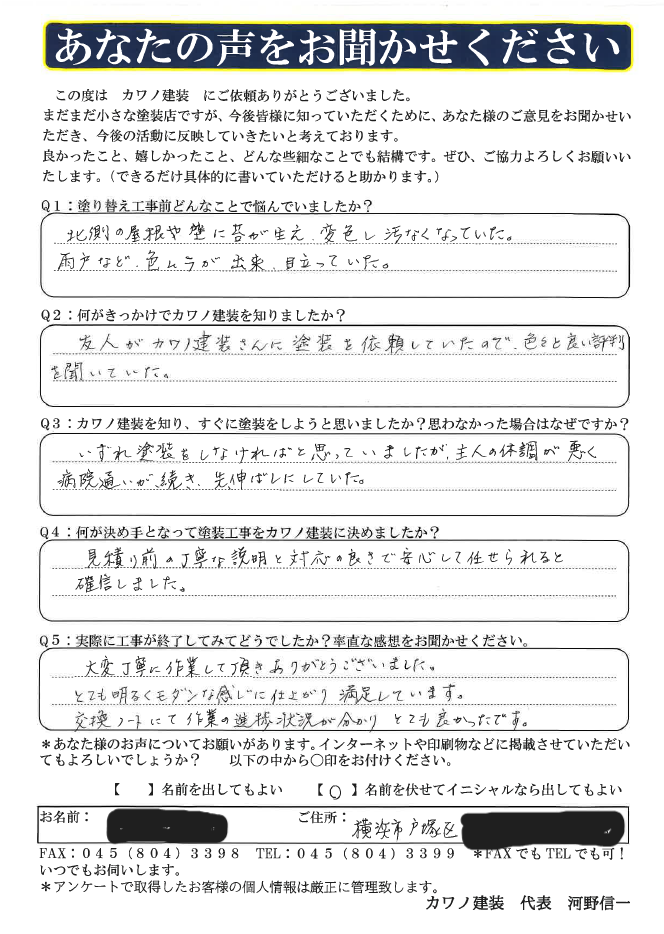 あなたの声をお聞かせください
この度は　カワノ建装　にご依頼ありがとうございました。
まだまだ小さな塗装店ですが、今後皆様に知っていただくために、あなた様のご意見をお聞かせい
ただき、今後の活動に反映していきたいと考えております。
良かったこと、嬉しかったこと、どんな些細なことでも結構です。ぜひ、ご協力よろしくお願いい
たします。（できるだけ具体的に書いていただけると助かります。）
Q1：塗り替え工事前どんなことで悩んでいましたか？
北側の屋根や壁に苔が生え、変色し汚なくなっていた。
雨戸など、色ムラが出来、目立っていた。
Q2：何がきっかけでカワノ建装を知りましたか？
友人がカワノ建装さんに塗装を依頼していたので、色々と良い評判
を聞いていた。
Q3：カワノ建装を知り、すぐに塗装をしようと思いましたか？思わなかった場合はなぜですか？
いずれ塗装をしなければと思っていましたが、主人の体調が悪く
病院通いが続き、先伸ばしにしていた。
Q4：何が決め手となって塗装工事をカワノ建装に決めましたか？
見積り前の丁寧な説明と対応の良さで安心して任せられると
確信しました。
Q5：実際に工事が終了してみてどうでしたか？率直な感想をお聞かせください。
大変丁寧に作業して頂きありがとうございました。
とても明るくモダンな感じに仕上がり満足しています。
交換ノートにて作業の進捗状況が分かりとても良かったです。
＊あなた様のお声についてお願いがあります。インターネットや印刷物などに掲載させていただい
てもよろしいでしょうか？　以下の中から〇印をお付けください。
【　】名前を出してもよい　【〇】名前を伏せてイニシャルなら出してもよい
お名前：　ご住所：　横浜市戸塚区
FAX：045（804）3398　TEL：045（804）3399　＊FAXでもTELでも可！
いつでもお伺いします。
＊アンケートで取得したお客様の個人情報は厳正に管理致します。
カワノ建装　代表　河野信一